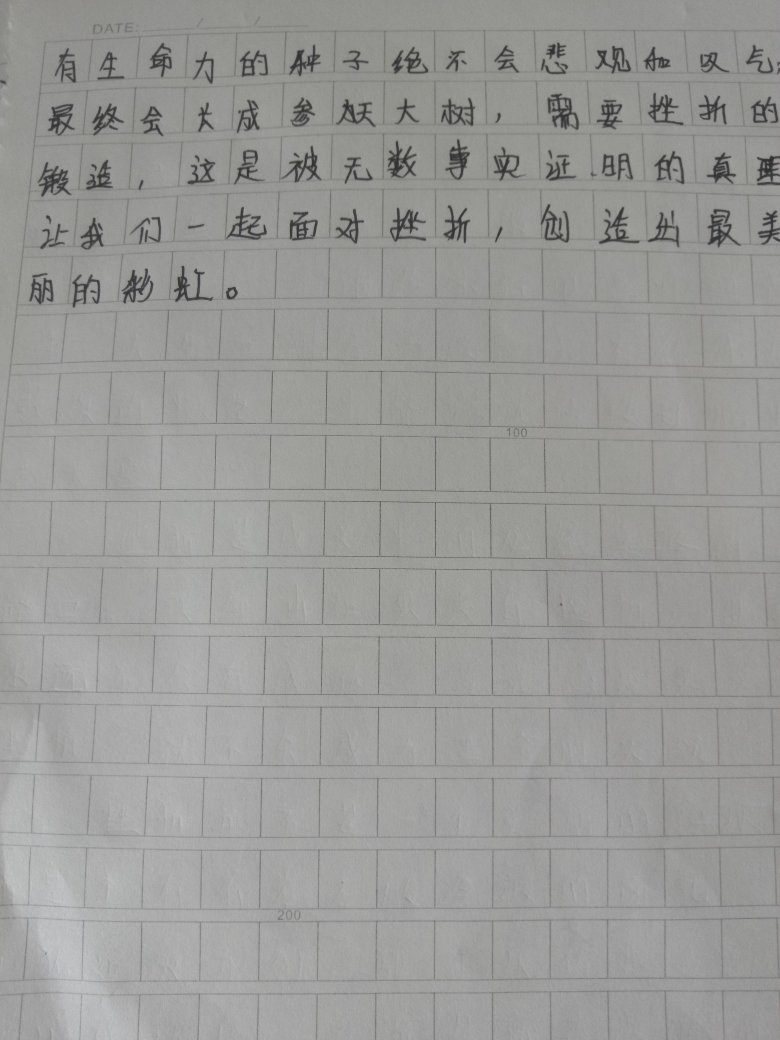 DATE: / /
有生命力的种子绝不会悲观和叹气
最终会长成参天大树，需要挫折的
锻造，这是被无数事实证明的真理
让我们一起面对挫折，创造出最美
丽的彩虹。
100
200